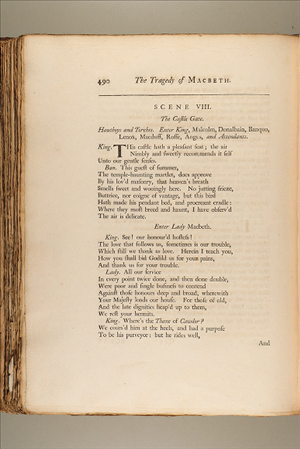 490 The Tragedy of MACBETH.
SCENE VIII.
The Castle Gate.
Hautboys and Torches. Enter King, Malcolm, Donalbain, Banquo,
Lenox, Macduff, Rosse, Angus, and Attendants.
King. THis castle hath a pleasant seat; the air
Nimbly and sweetly recommends it self
Unto our gentle senses.
Ban. This guest of summer,
The temple-haunting martlet, does approve
By his lov'd masonry, that heaven's breath
Smells sweet and wooingly here. No jutting frieze,
Buttrice, nor coigne of vantage, but this bird
Hath made his pendant bed, and procreant cradle:
Where they most breed and haunt, I have observ'd
The air is delicate.
Enter Lady Macbeth.
King. See! our honour'd hostess!
The love that follows us, sometimes is our trouble,
Which still we thank as love. Herein I teach you,
How you shall bid God'ild us for your pains,
And thank us for your trouble.
Lady. All our service
In every point twice done, and then done double,
Were poor and single business to contend
Against those honours deep and broad, wherewith
Your Majesty loads our house. For those of old,
And the late dignities heap'd up to them,
We rest your hermits.
King. Where's the Thane of Cawdor?
We cours'd him at the heels, and had a purpose
To be his purveyor: but he rides well,
And